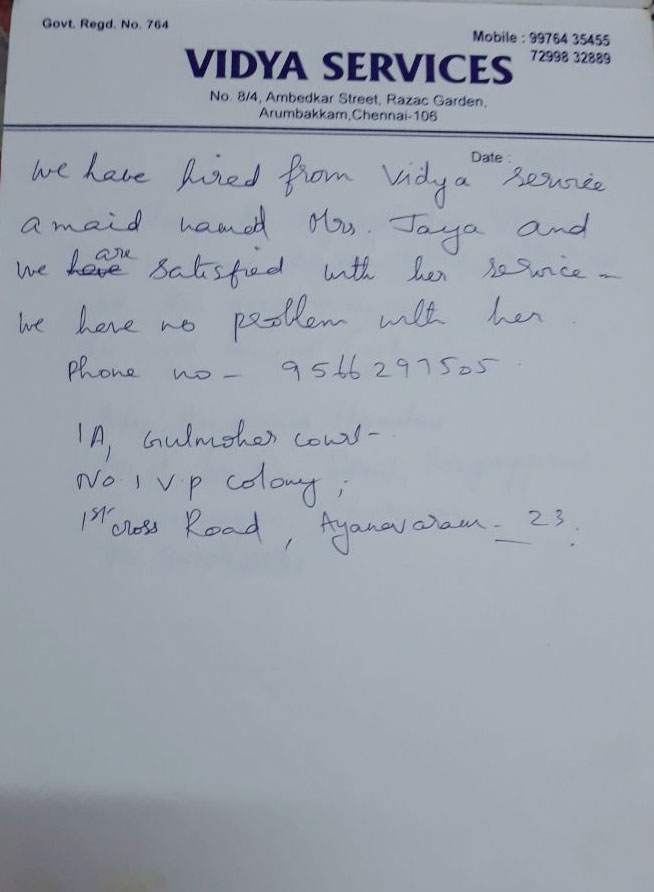 Govt. Regd. No. 764
Mobile : 99764 35455
72998 32889
VIDYA SERVICES
No. 8/4, Ambedkar Street, Razac Garden,
Arumbakkam,Chennai-106
Date :
We have hired from Vidya service
a maid named Mrs. Jaya and
we are satisfied with her service -
We have no problem with her.
Phone no - 9566297505
1A, Gulmoher court-
No 1 V.P colony,
1st cross Road, Ayanavaram - 23.